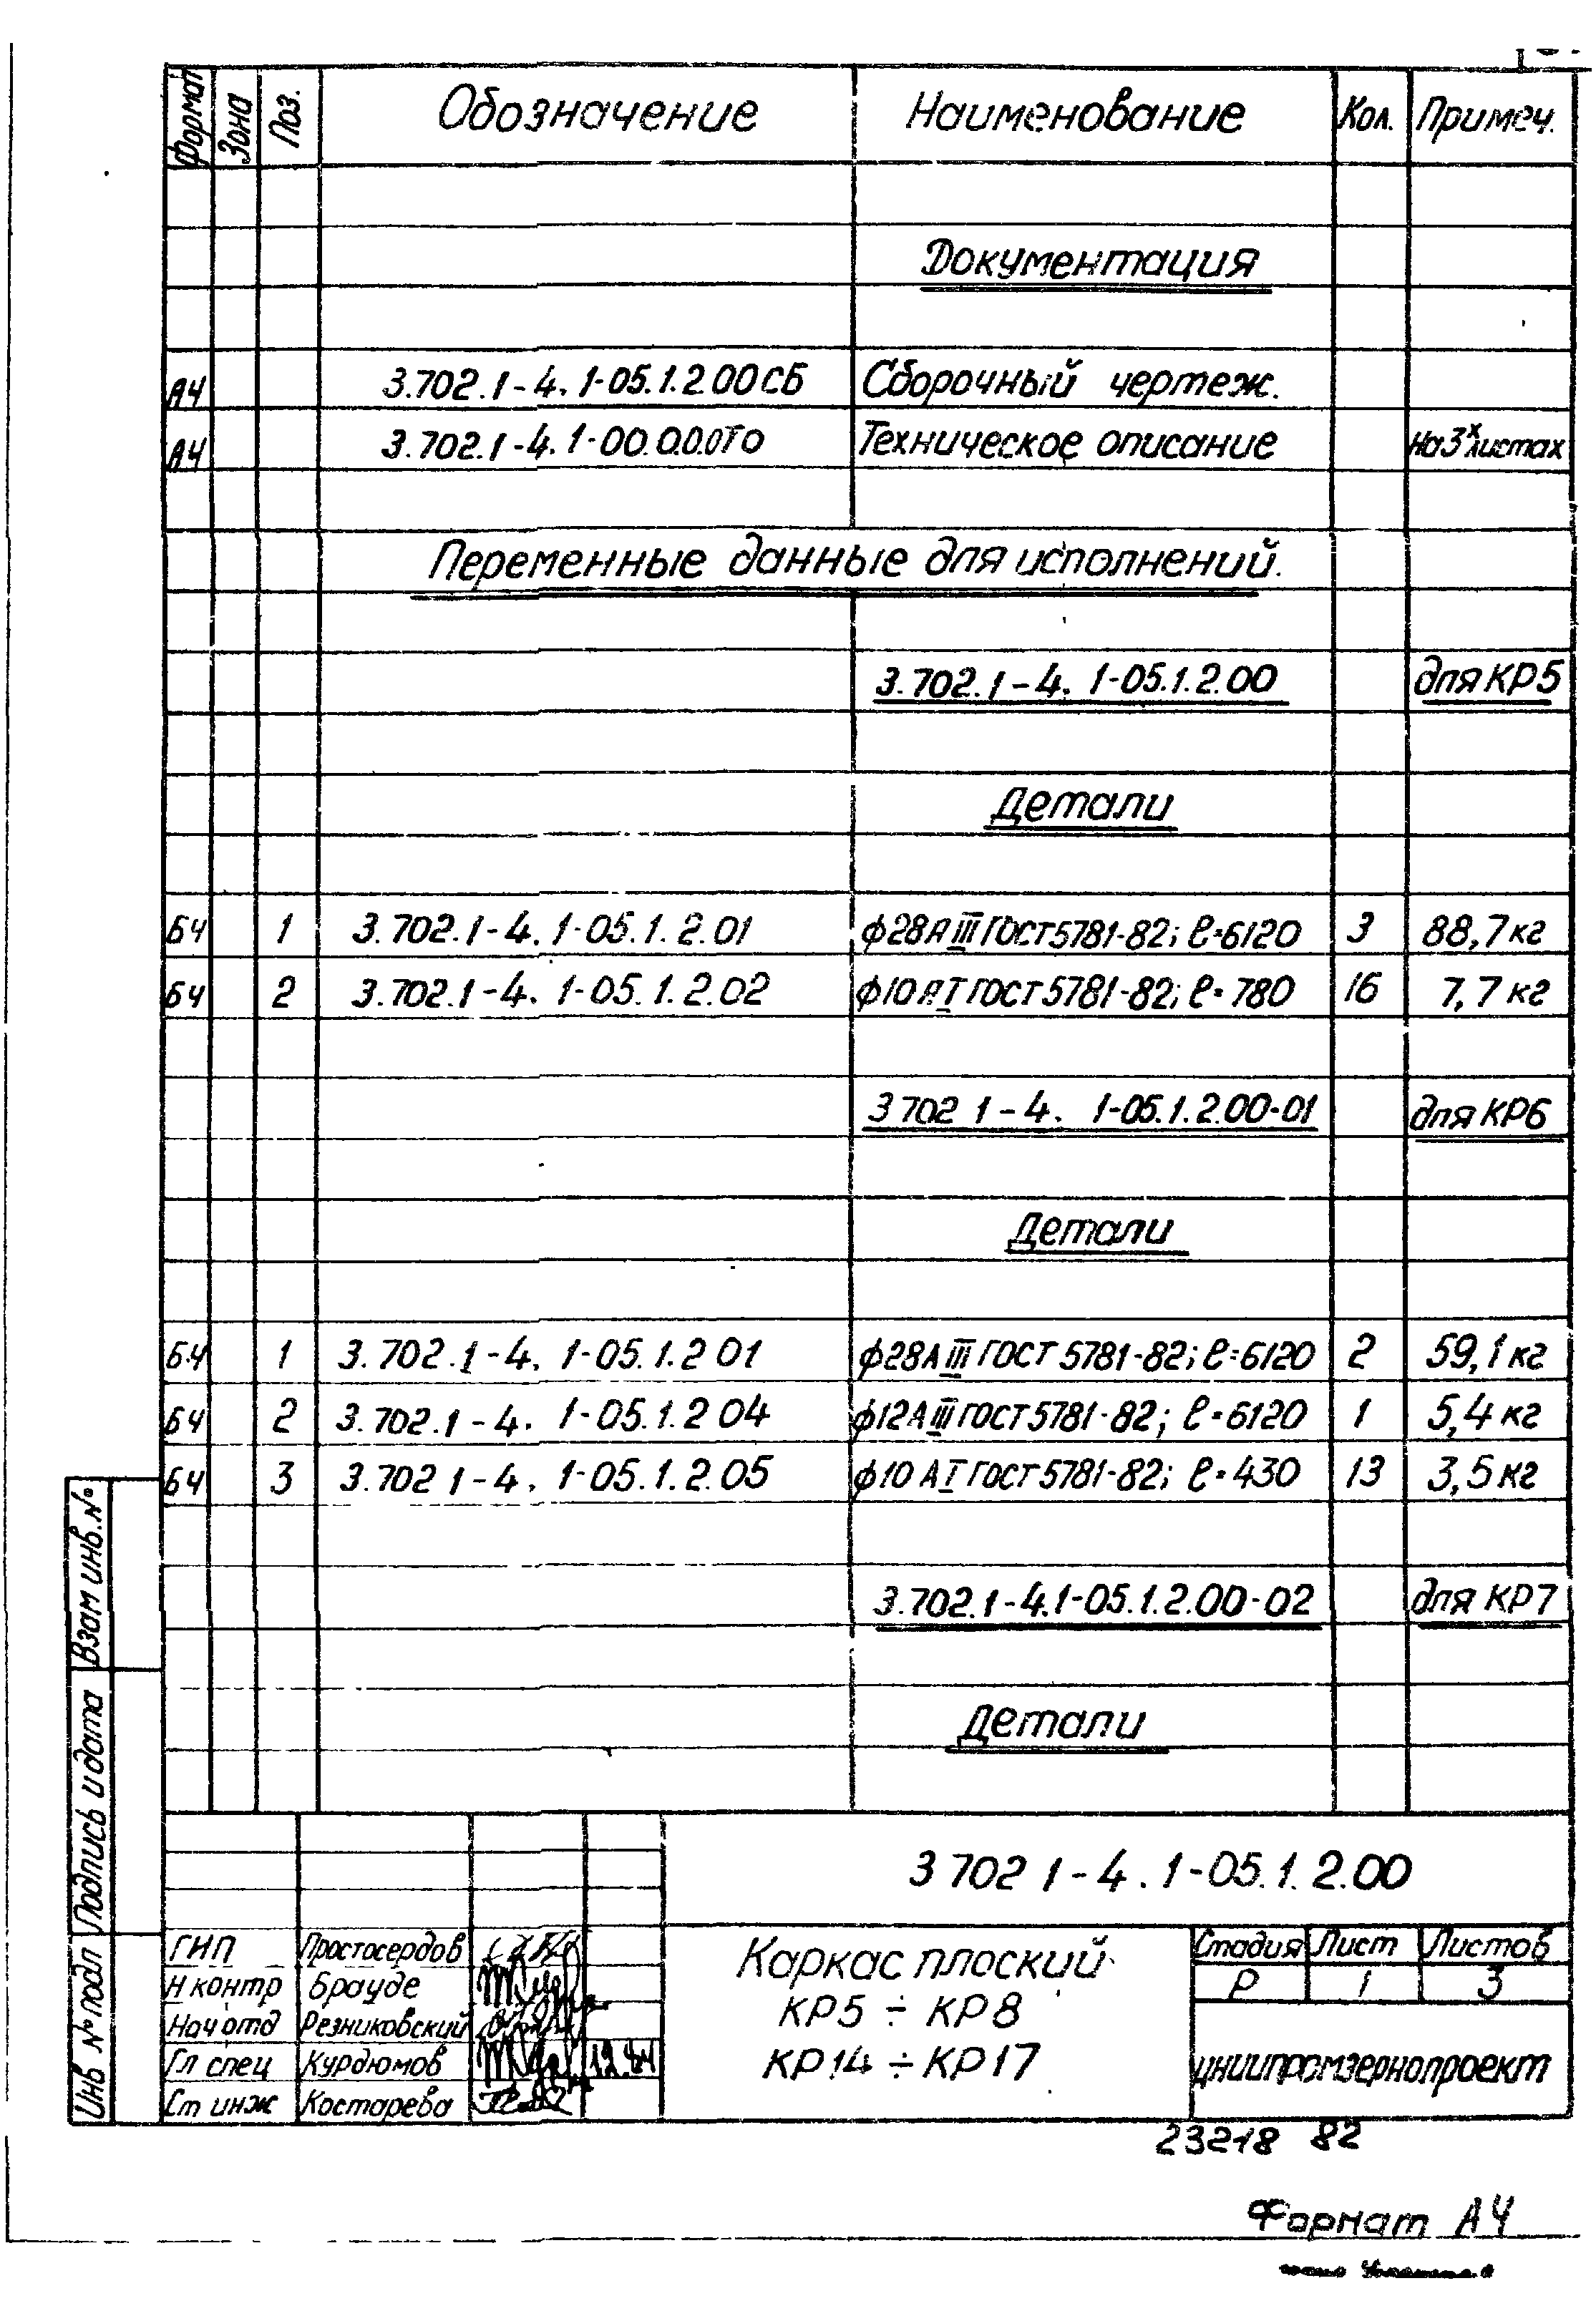 Формат Зона Поз. Обозначение Наименование Кол. Примеч.
Документация
А4 3.702.1-4.1-05.1.2.00СБ Сборочный чертеж.
А4 3.702.1-4.1-00.0.0.0ТО Техническое описание На 3х листах
Переменные данные для исполнений.
3.702.1-4.1-05.1.2.00 для КР5
Детали
БЧ 1 3.702.1-4.1-05.1.2.01 ф28АIII ГОСТ 5781-82; ℓ=6120 3 88,7 кг
БЧ 2 3.702.1-4.1-05.1.2.02 ф10АI ГОСТ 5781-82; ℓ=780 16 7,7 кг
3 702 1-4. 1-05.1.2.00-01 для КР6
Детали
БЧ 1 3.702.1-4.1-05.1.2 01 ф28АIII ГОСТ 5781-82; ℓ=6120 2 59,1 кг
БЧ 2 3.702.1-4.1-05.1.2 04 ф12АIII ГОСТ 5781-82; ℓ=6120 1 5,4 кг
БЧ 3 3.702 1-4.1-05.1.2.05 ф10 АI ГОСТ 5781-82; ℓ=430 13 3,5 кг
3.702.1-4.1-05.1.2.00-02 для КР7
Детали
Взам инв. №
Подпись и дата
Инв № подл
3 702 1-4.1-05.1.2.00
ГИП Простосердов
Н контр Брауде
Нач отд Резниковский
Гл спец Курдюмов 12.84
Ст инж Костарева
Каркас плоский
КР5 ÷ КР8
КР14 ÷ КР17
Стадия Лист Листов
Р 1 3
ЦНИИПРОМЗЕРНОПРОЕКТ
23218 82
Формат А4